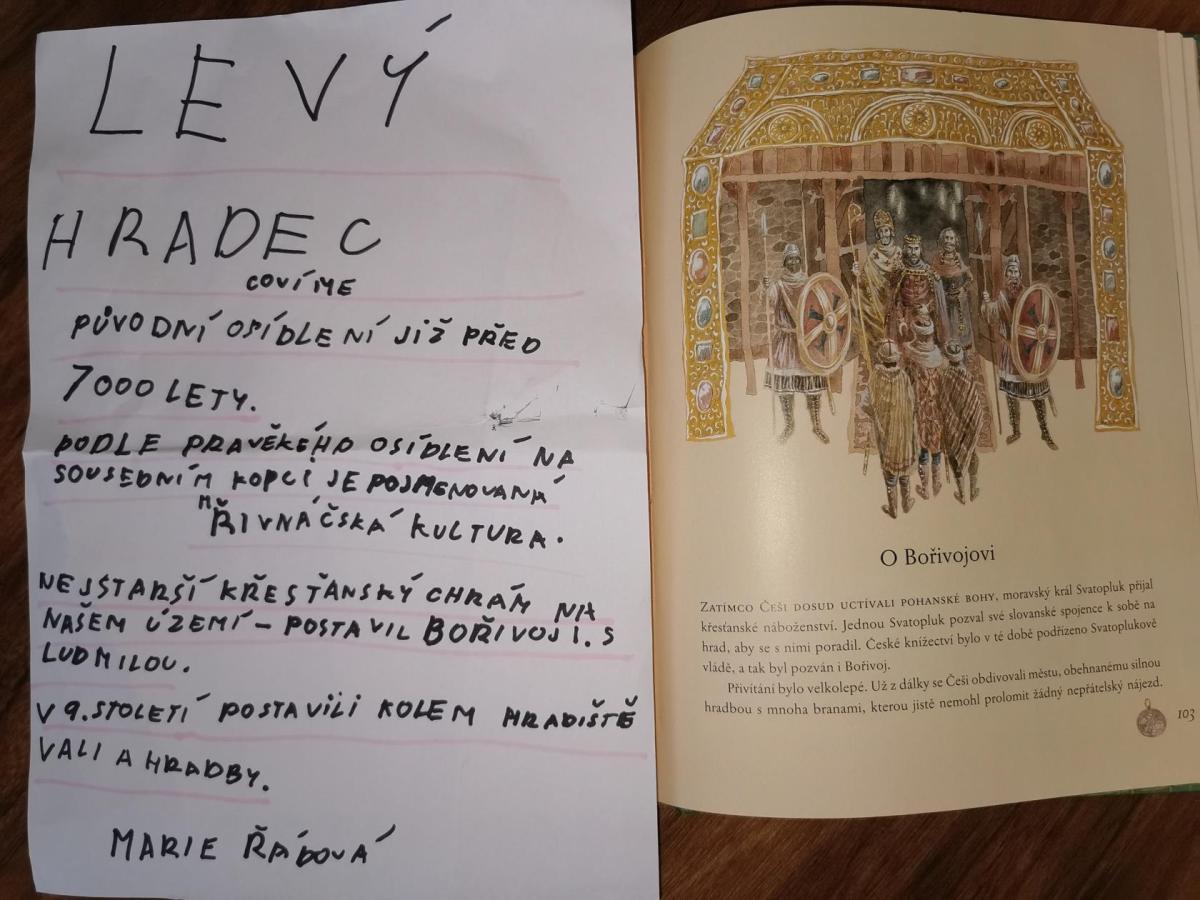 LEVÝ
HRADEC
CO VÍME
PŮVODNÍ OSÍDLENÍ JIŽ PŘED
7000 LETY.
PODLE PRAVĚKÉHO OSÍDLENÍ NA
SOUSEDNÍM KOPCI JE POJMENOVANÁ
"ŘIVNÁČSKÁ KULTURA.
NEJSTARŠÍ KŘESŤANSKÝ CHRÁM NA
NAŠEM ÚZEMÍ – POSTAVIL BOŘIVOJ I. S
LUDMILOU.
V 9. STOLETÍ POSTAVILI KOLEM HRADIŠTĚ
VALI A HRADBY.
MARIE ŘÁDOVÁ
O Bořivojovi
ZATÍMCO ČEŠI DOSUD UCTÍVALI POHANSKÉ BOHY, moravský král Svatopluk přijal
křesťanské náboženství. Jednou Svatopluk pozval své slovanské spojence k sobě na
hrad, aby se s nimi poradil. České knížectví bylo v té době podřízeno Svatoplukově
vládě, a tak byl pozván i Bořivoj.
Přivítání bylo velkolepé. Už z dálky se Češi obdivovali městu, obehnanému silnou
hradbou s mnoha branami, kterou jistě nemohl prolomit žádný nepřátelský nájezd.
103